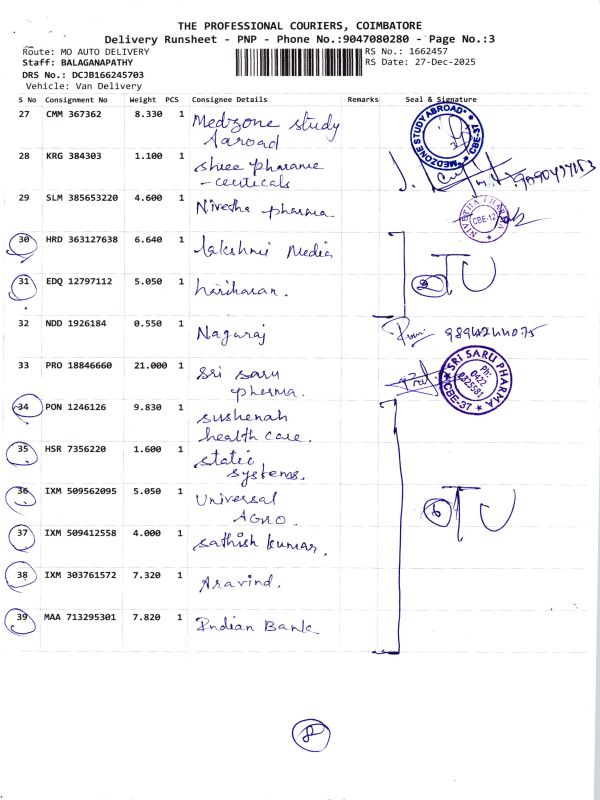 THE PROFESSIONAL COURIERS, COIMBATORE
Delivery Runsheet - PNP - Phone No.:9047080280 - Page No.:3
Route: MO AUTO DELIVERY RS No.: 1662457
Staff: BALAGANAPATHY RS Date: 27-Dec-2025
DRS No.: DCJB166245703
Vehicle: Van Delivery
S No Consignment No Weight PCS Consignee Details Remarks Seal & Signature
27 CMM 367362 8.330 1 Medzone study
Aaroad
MEDZONE STUDY ABROAD CBE-37
28 KRG 384303 1.100 1 shree pharame
- ceuticals
29 SLM 385653220 4.600 1 Nivetha pharma
NIVETHA PHARMA CBE-12
30 HRD 363127638 6.640 1 lakshmi Media
31 EDQ 12797112 5.050 1 hariharan.
2 TU
32 NDD 1926184 0.550 1 Nagaraj 9894244075
33 PRO 18846660 21.000 1 sri saru
pharma.
SRI SARU PHARMA Ph: 0422 CBE-37
34 PON 1246126 9.830 1 sushenah
health care.
35 HSR 7356220 1.600 1 static
systems.
36 IXM 509562095 5.050 1 Universal
AGRO.
6 TU
37 IXM 509412558 4.000 1 sathish kumar.
38 IXM 303761572 7.320 1 Aravind.
39 MAA 713295301 7.820 1 Indian Bank
8